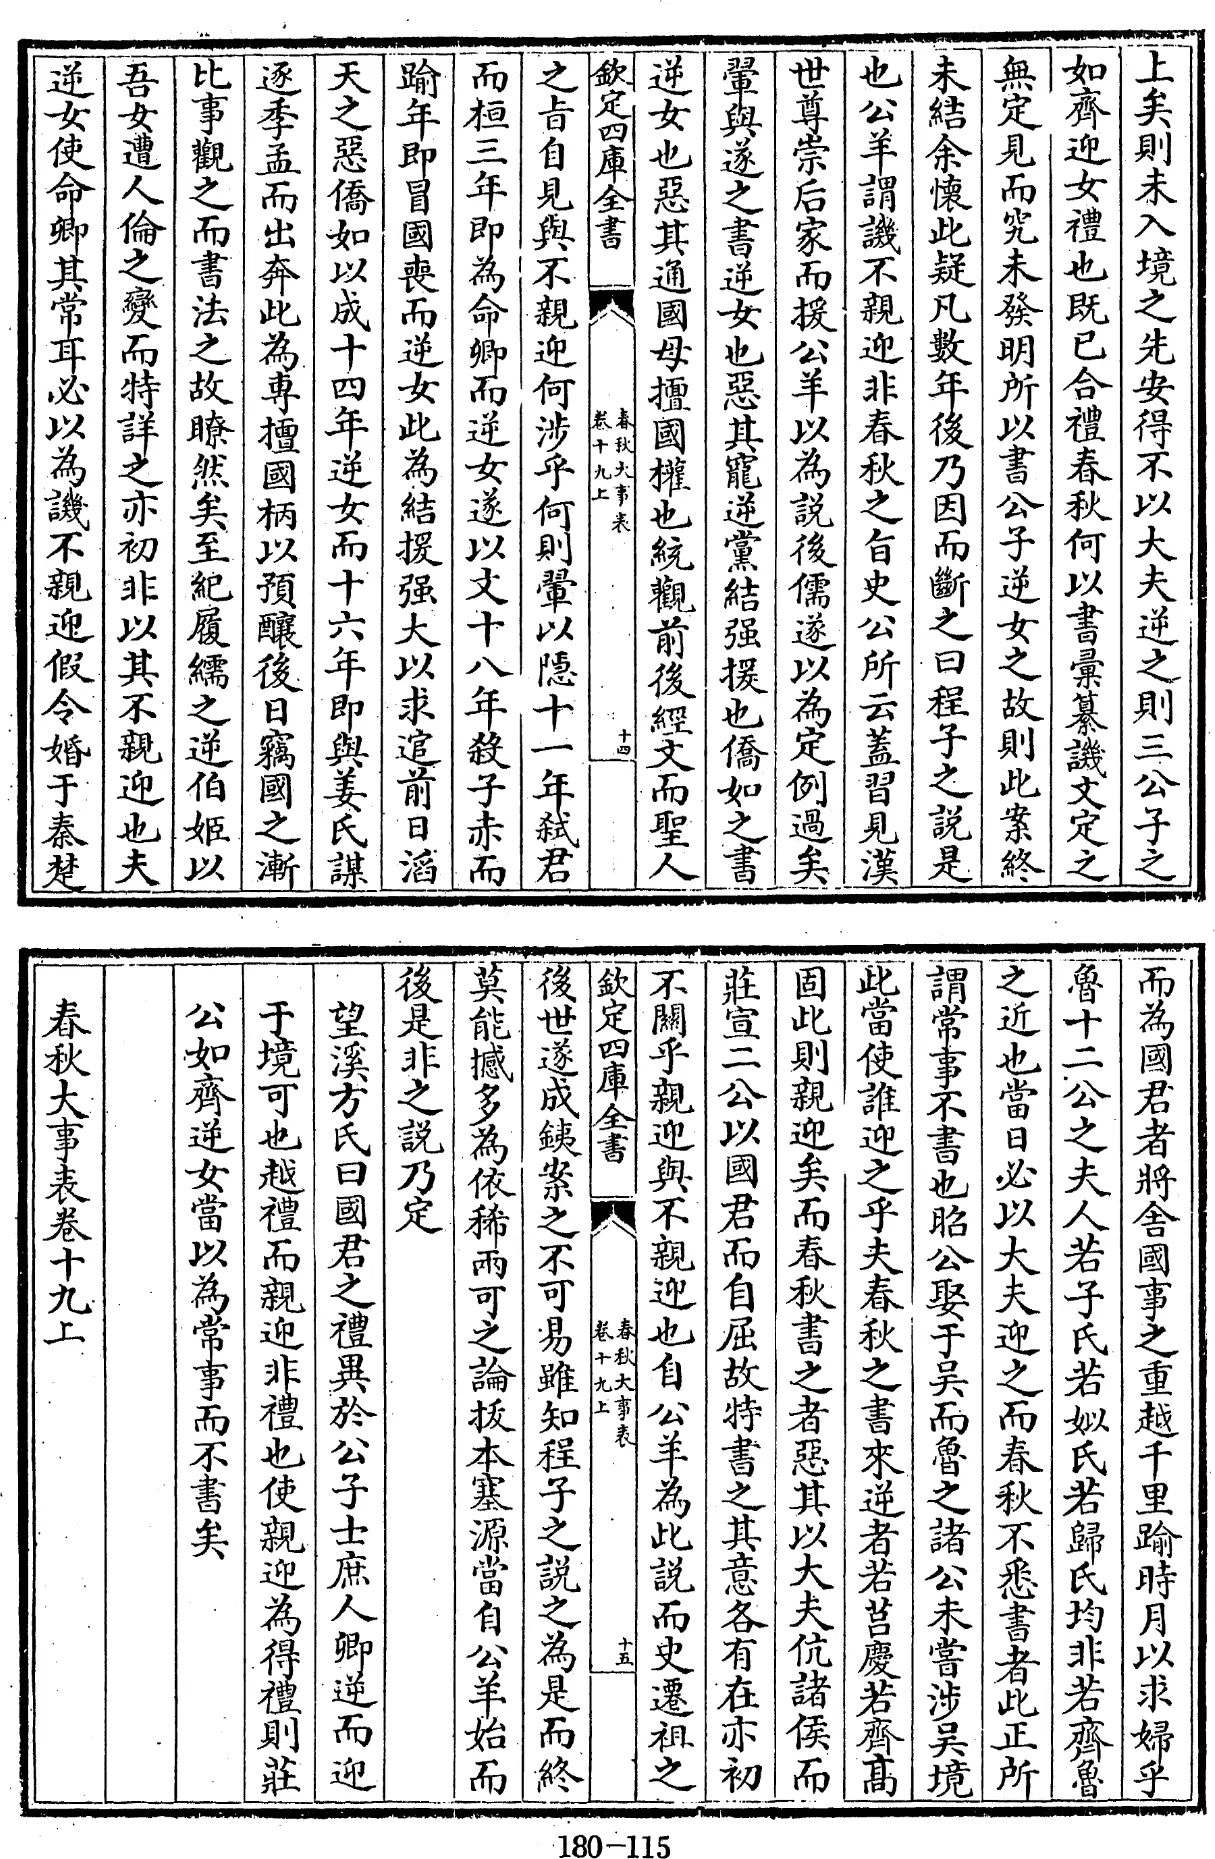 上矣則未入境之先安得不以大夫逆之則三公子之
如齊迎女禮也既已合禮春秋何以書彙纂譏文定之
無定見而究未發明所以書公子逆女之故則此案終
未結余懷此疑凡數年後乃因而斷之曰程子之説是
也公羊謂譏不親迎非春秋之旨史公所云蓋習見漢
世尊崇后家而援公羊以為説後儒遂以為定例過矣
翬與遂之書逆女也惡其寵逆黨結强援也僑如之書
逆女也惡其通國母擅國權也統觀前後經文而聖人
欽定四庫全書
春秋大事表
卷十九上
十四
之旨自見與不親迎何涉乎何則翬以隱十一年弑君
而桓三年即為命卿而逆女遂以文十八年殺子赤而
踰年即冒國喪而逆女此為結援强大以求逭前日滔
天之惡僑如以成十四年逆女而十六年即與姜氏謀
逐季孟而出奔此為專擅國柄以預釀後日竊國之漸
比事觀之而書法之故瞭然矣至紀履繻之逆伯姬以
吾女遭人倫之變而特詳之亦初非以其不親迎也夫
逆女使命卿其常耳必以為譏不親迎假令婚于秦楚
而為國君者將舍國事之重越千里踰時月以求婦乎
魯十二公之夫人若子氏若姒氏若歸氏均非若齊魯
之近也當日必以大夫迎之而春秋不悉書者此正所
謂常事不書也昭公娶于吴而魯之諸公未嘗涉吴境
此當使誰迎之乎夫春秋之書來逆者若莒慶若齊高
固此則親迎矣而春秋書之者惡其以大夫伉諸侯而
莊宣二公以國君而自屈故特書之其意各有在亦初
不關乎親迎與不親迎也自公羊為此説而史遷祖之
欽定四庫全書
春秋大事表
卷十九上
十五
後世遂成鐵案之不可易雖知程子之説之為是而終
莫能撼多為依稀兩可之論拔本塞源當自公羊始而
後是非之説乃定
望溪方氏曰國君之禮異於公子士庶人卿逆而迎
于境可也越禮而親迎非禮也使親迎為得禮則莊
公如齊逆女當以為常事而不書矣
春秋大事表卷十九上
180-115